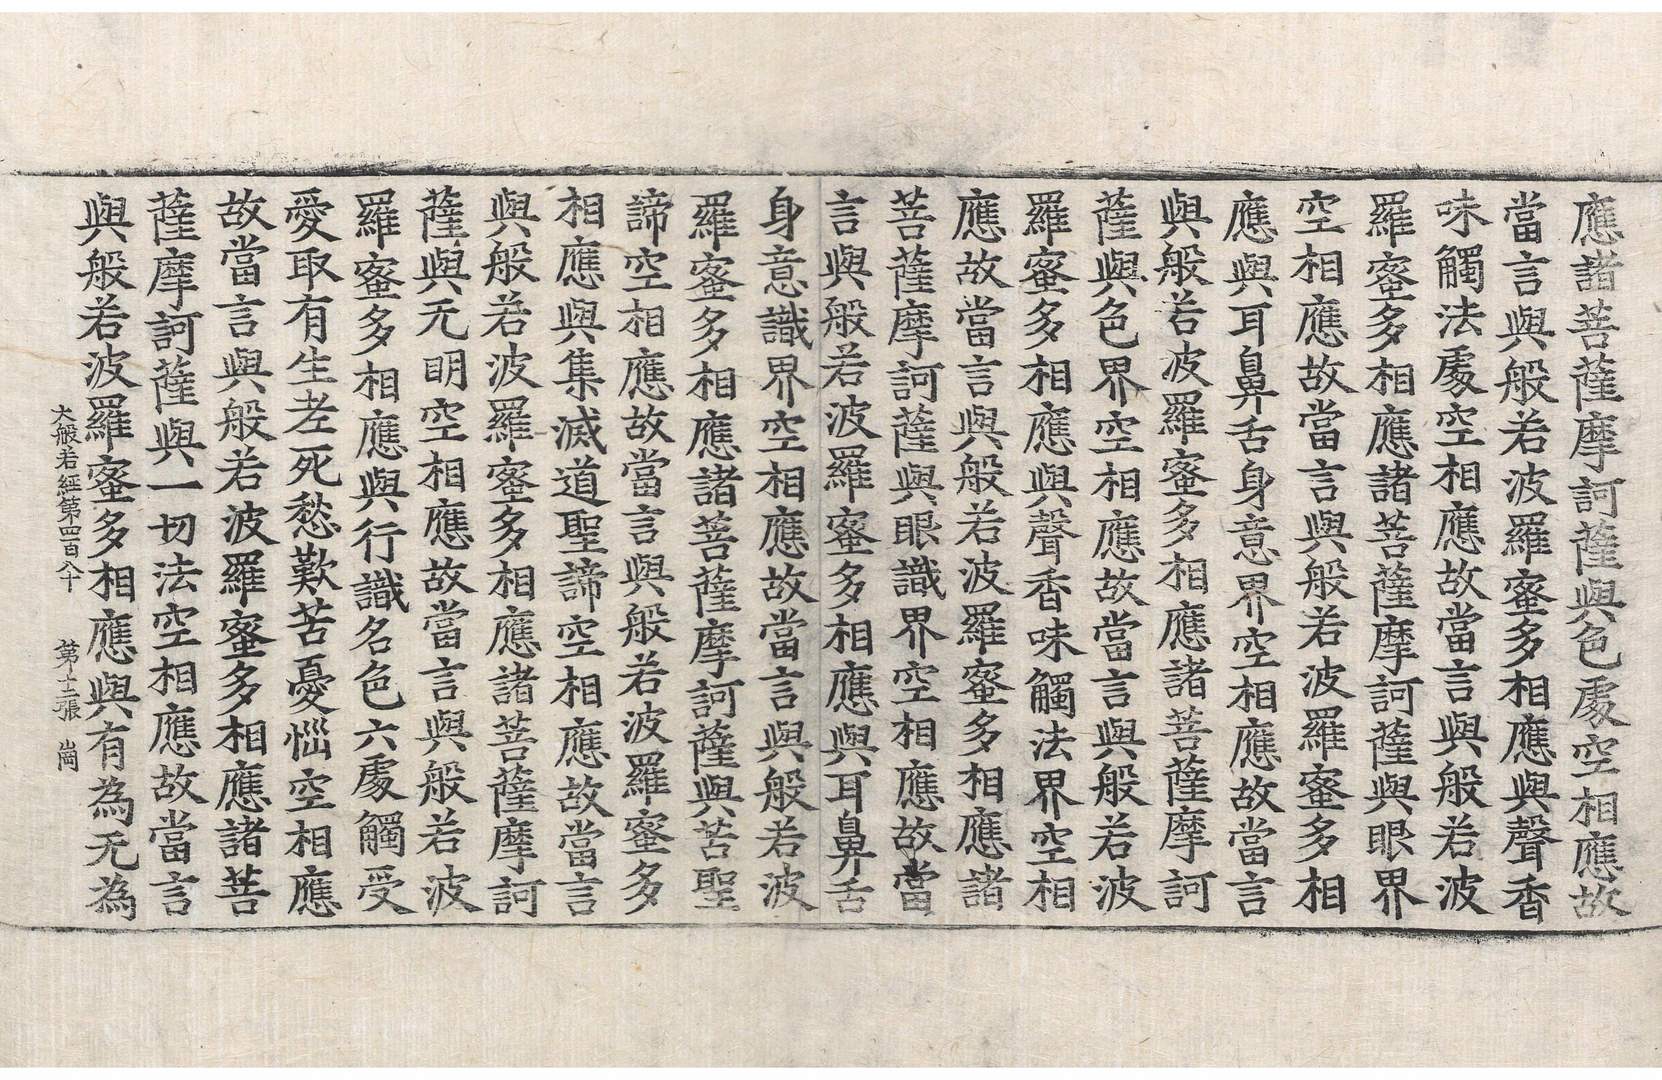 應諸菩薩摩訶薩與色處空相應故
當言與般若波羅蜜多相應與聲香
味觸法處空相應故當言與般若波
羅蜜多相應諸菩薩摩訶薩與眼界
空相應故當言與般若波羅蜜多相
應與耳鼻舌身意界空相應故當言
與般若波羅蜜多相應諸菩薩摩訶
薩與色界空相應故當言與般若波
羅蜜多相應與聲香味觸法界空相
應故當言與般若波羅蜜多相應諸
菩薩摩訶薩與眼識界空相應故當
言與般若波羅蜜多相應與耳鼻舌
身意識界空相應故當言與般若波
羅蜜多相應諸菩薩摩訶薩與苦聖
諦空相應故當言與般若波羅蜜多
相應與集滅道聖諦空相應故當言
與般若波羅蜜多相應諸菩薩摩訶
薩與无明空相應故當言與般若波
羅蜜多相應與行識名色六處觸受
愛取有生老死愁歎苦憂惱空相應
故當言與般若波羅蜜多相應諸菩
薩摩訶薩與一切法空相應故當言
與般若波羅蜜多相應與有為无為
大般若經第四百八十 第十二張 崗